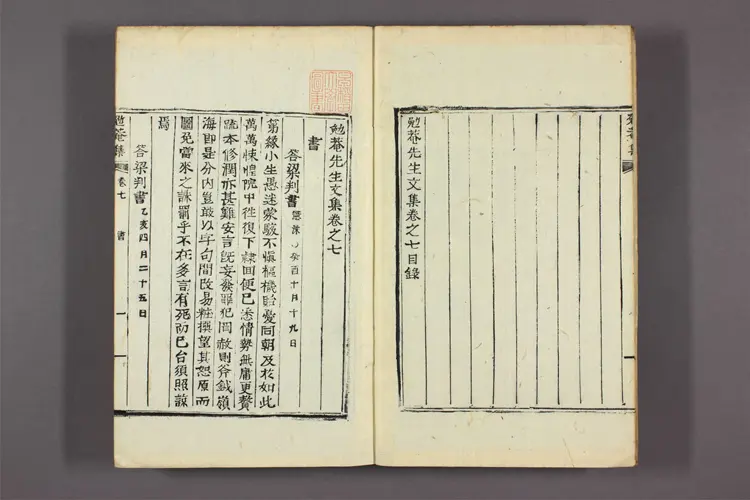 勉菴先生文集卷之七目錄
勉菴先生文集卷之七
書
答梁判書 癸酉十月十九日
第緣小生愚迷蒙騃不愼樞機貽憂同朝及於如此
萬萬悚惶院甲往復下隷回便已悉情勢無庸更贅
疏本修潤亦甚難安言旣妄發罪犯罔赦則斧鉞嶺
海卽是分內豈敢以字句間改易粧撰望其恕原而
圖免當來之誅罰乎不在多言有死而已台須照諒
焉
答梁判書 乙亥四月二十五日
勉菴集 卷七 書 一